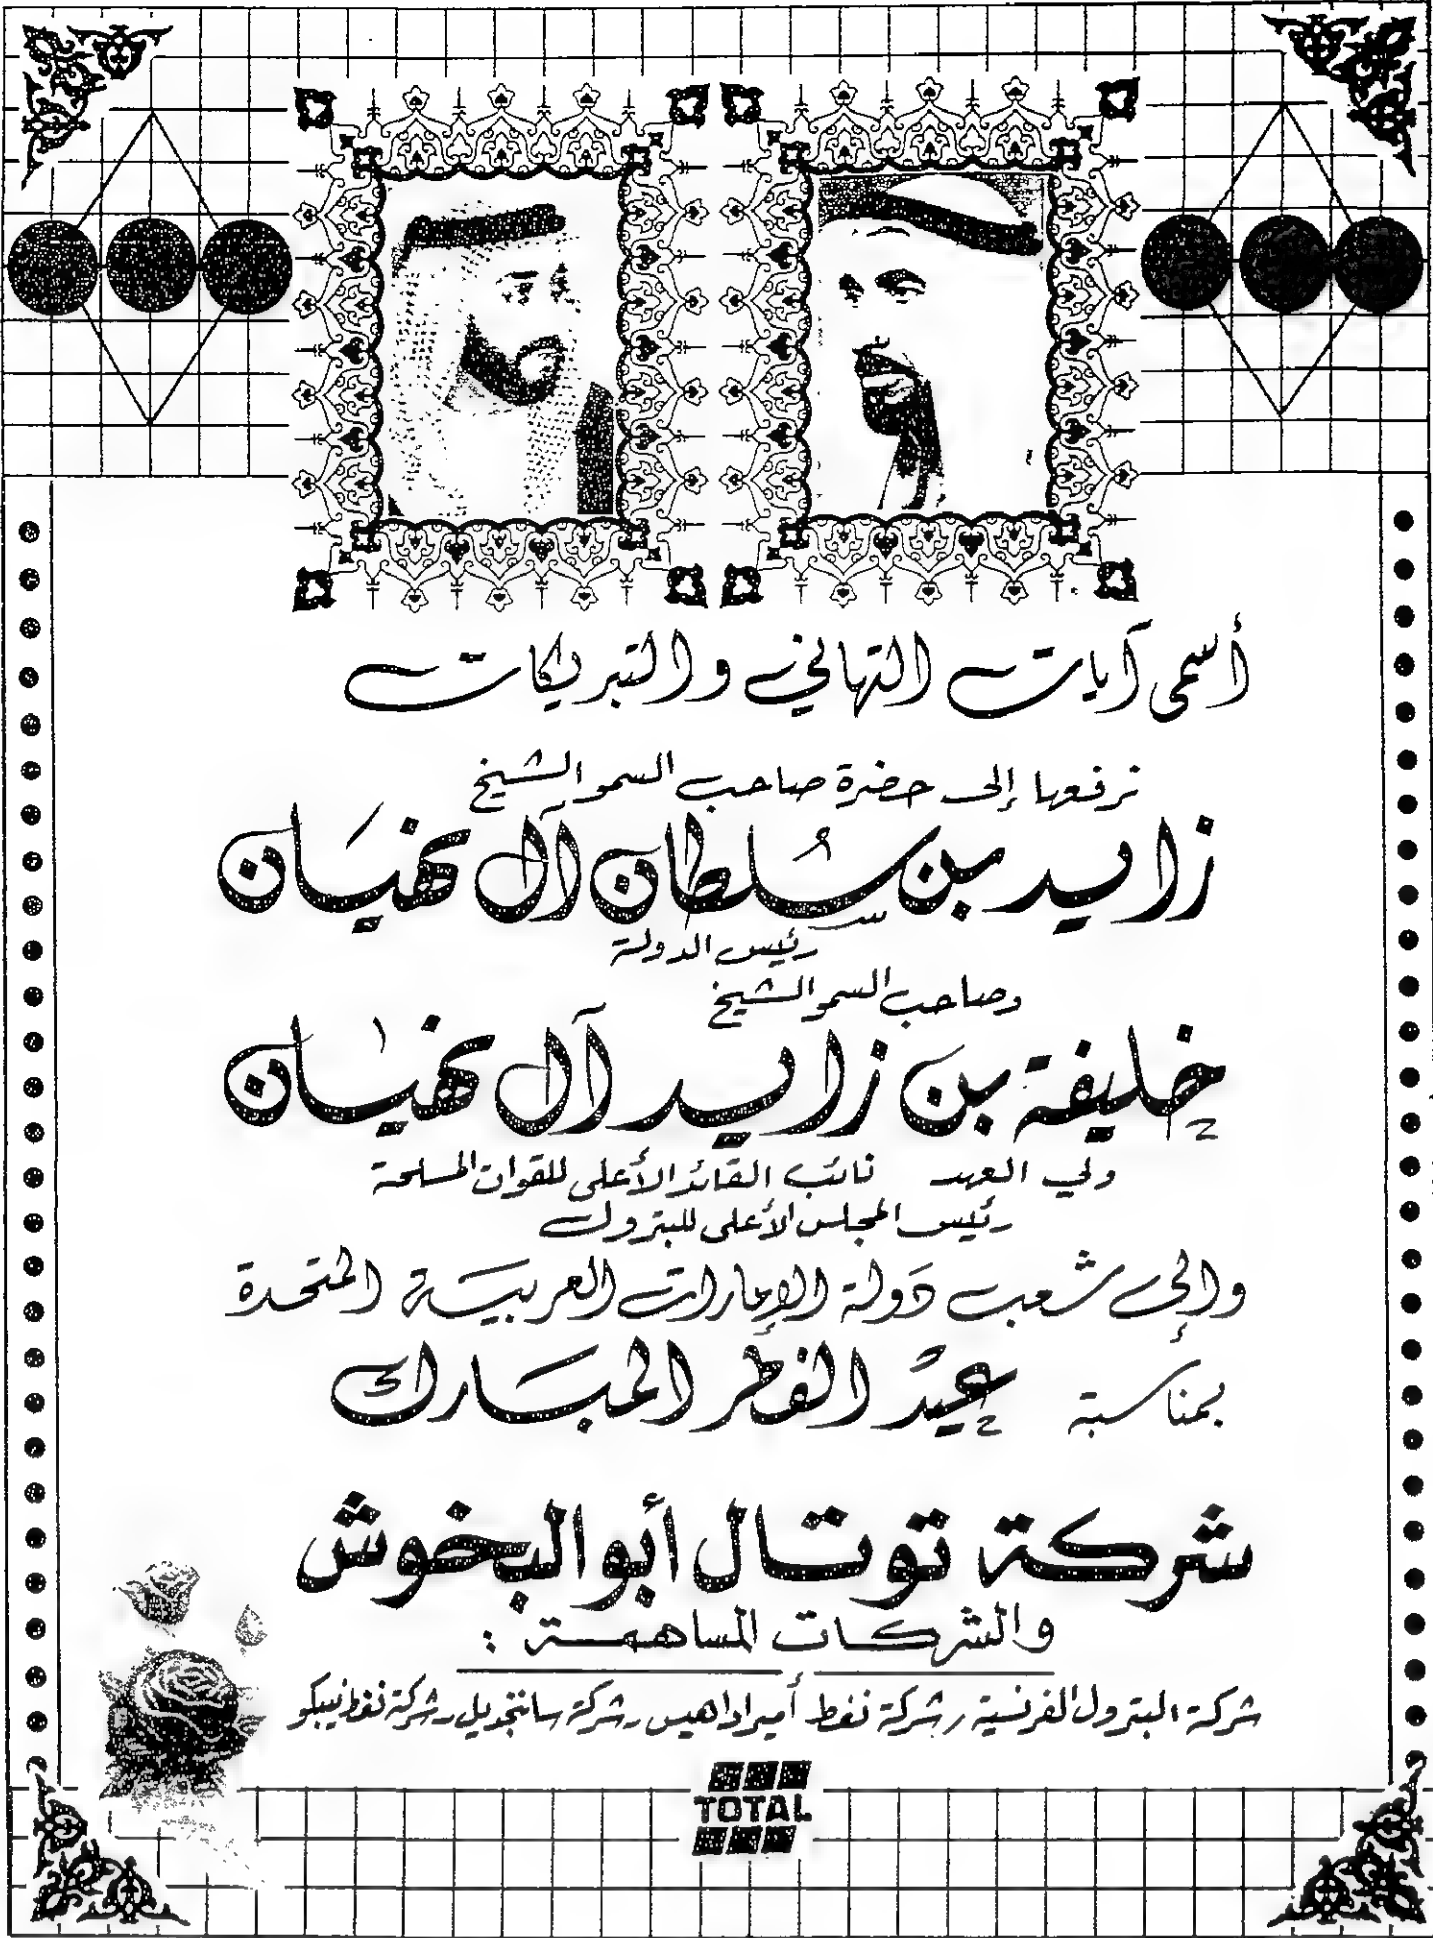 أسمى آيات التهاني والتبريكات
نرفعها إلى حضرة صاحب السمو الشيخ
زايد بن سلطان آل نهيان
رئيس الدولة
وصاحب السمو الشيخ
خليفة بن زايد آل نهيان
ولي العهد نائب القائد الأعلى للقوات المسلحة
رئيس المجلس الأعلى للبترول
وإلى شعب دولة الإمارات العربية المتحدة
بمناسبة عيد الفطر المبارك
شركة توتال أبو البخوش
والشركات المساهمة :
شركة البترول الفرنسية ، شركة نفط أميرادا هيس ، شركة سانتجديل ، شركة نفط نيبكو
TOTAL